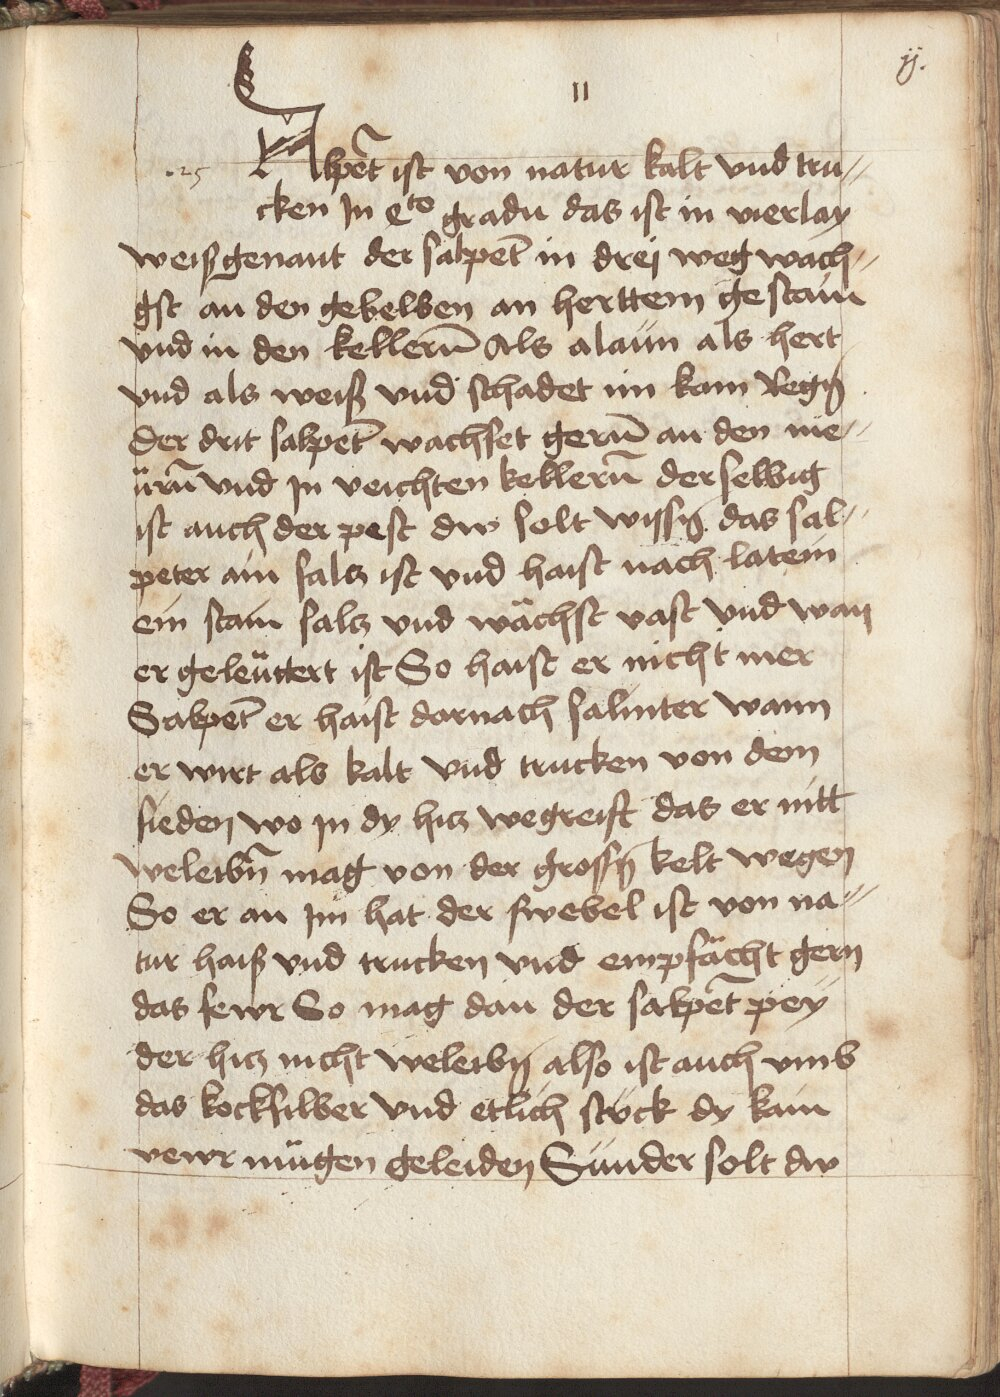 ij.
11
.25 Salpet̄ ist von natur kalt vnd tru⸗
cken Jn Qto gradu das ist in vierlay
weiß genant der salpet̄ in drei weg wach⸗
gst an den gebelben an herttem gestain
vnd in den kellern̄ Als alaün als hert
vnd als weiß vnd schadet im kain Regn̄
Der drit salpet̄ wachset gern̄ an den me⸗
ürn̄ vnd Jn veichten kellern̄ der selbig
ist auch der pest dw solt wissn̄ das sal⸗
peter ain salcz ist vnd haist nach latein
ein stain salcz vnd wächst vast vnd wan
er geleüttert ist So haist er nicht mer
Salpet̄ er haist dornach saliniter wann
er wirt als kalt vnd trucken von dem
sieden wo Jn dy hicz wegreift das er nitt
weleibn̄ mag von der grossn̄ kelt wegen
So er an Jm hat der swebel ist von na⸗
tur haiß vnd trucken vnd empfächt gern
das fewr So mag dan der salpet̄ pey
der hicz nicht weleibn̄ also ist auch vmb
das kocksilber vnd etlich stück dy kain
vewr mügen geleiden Sünder solt dw